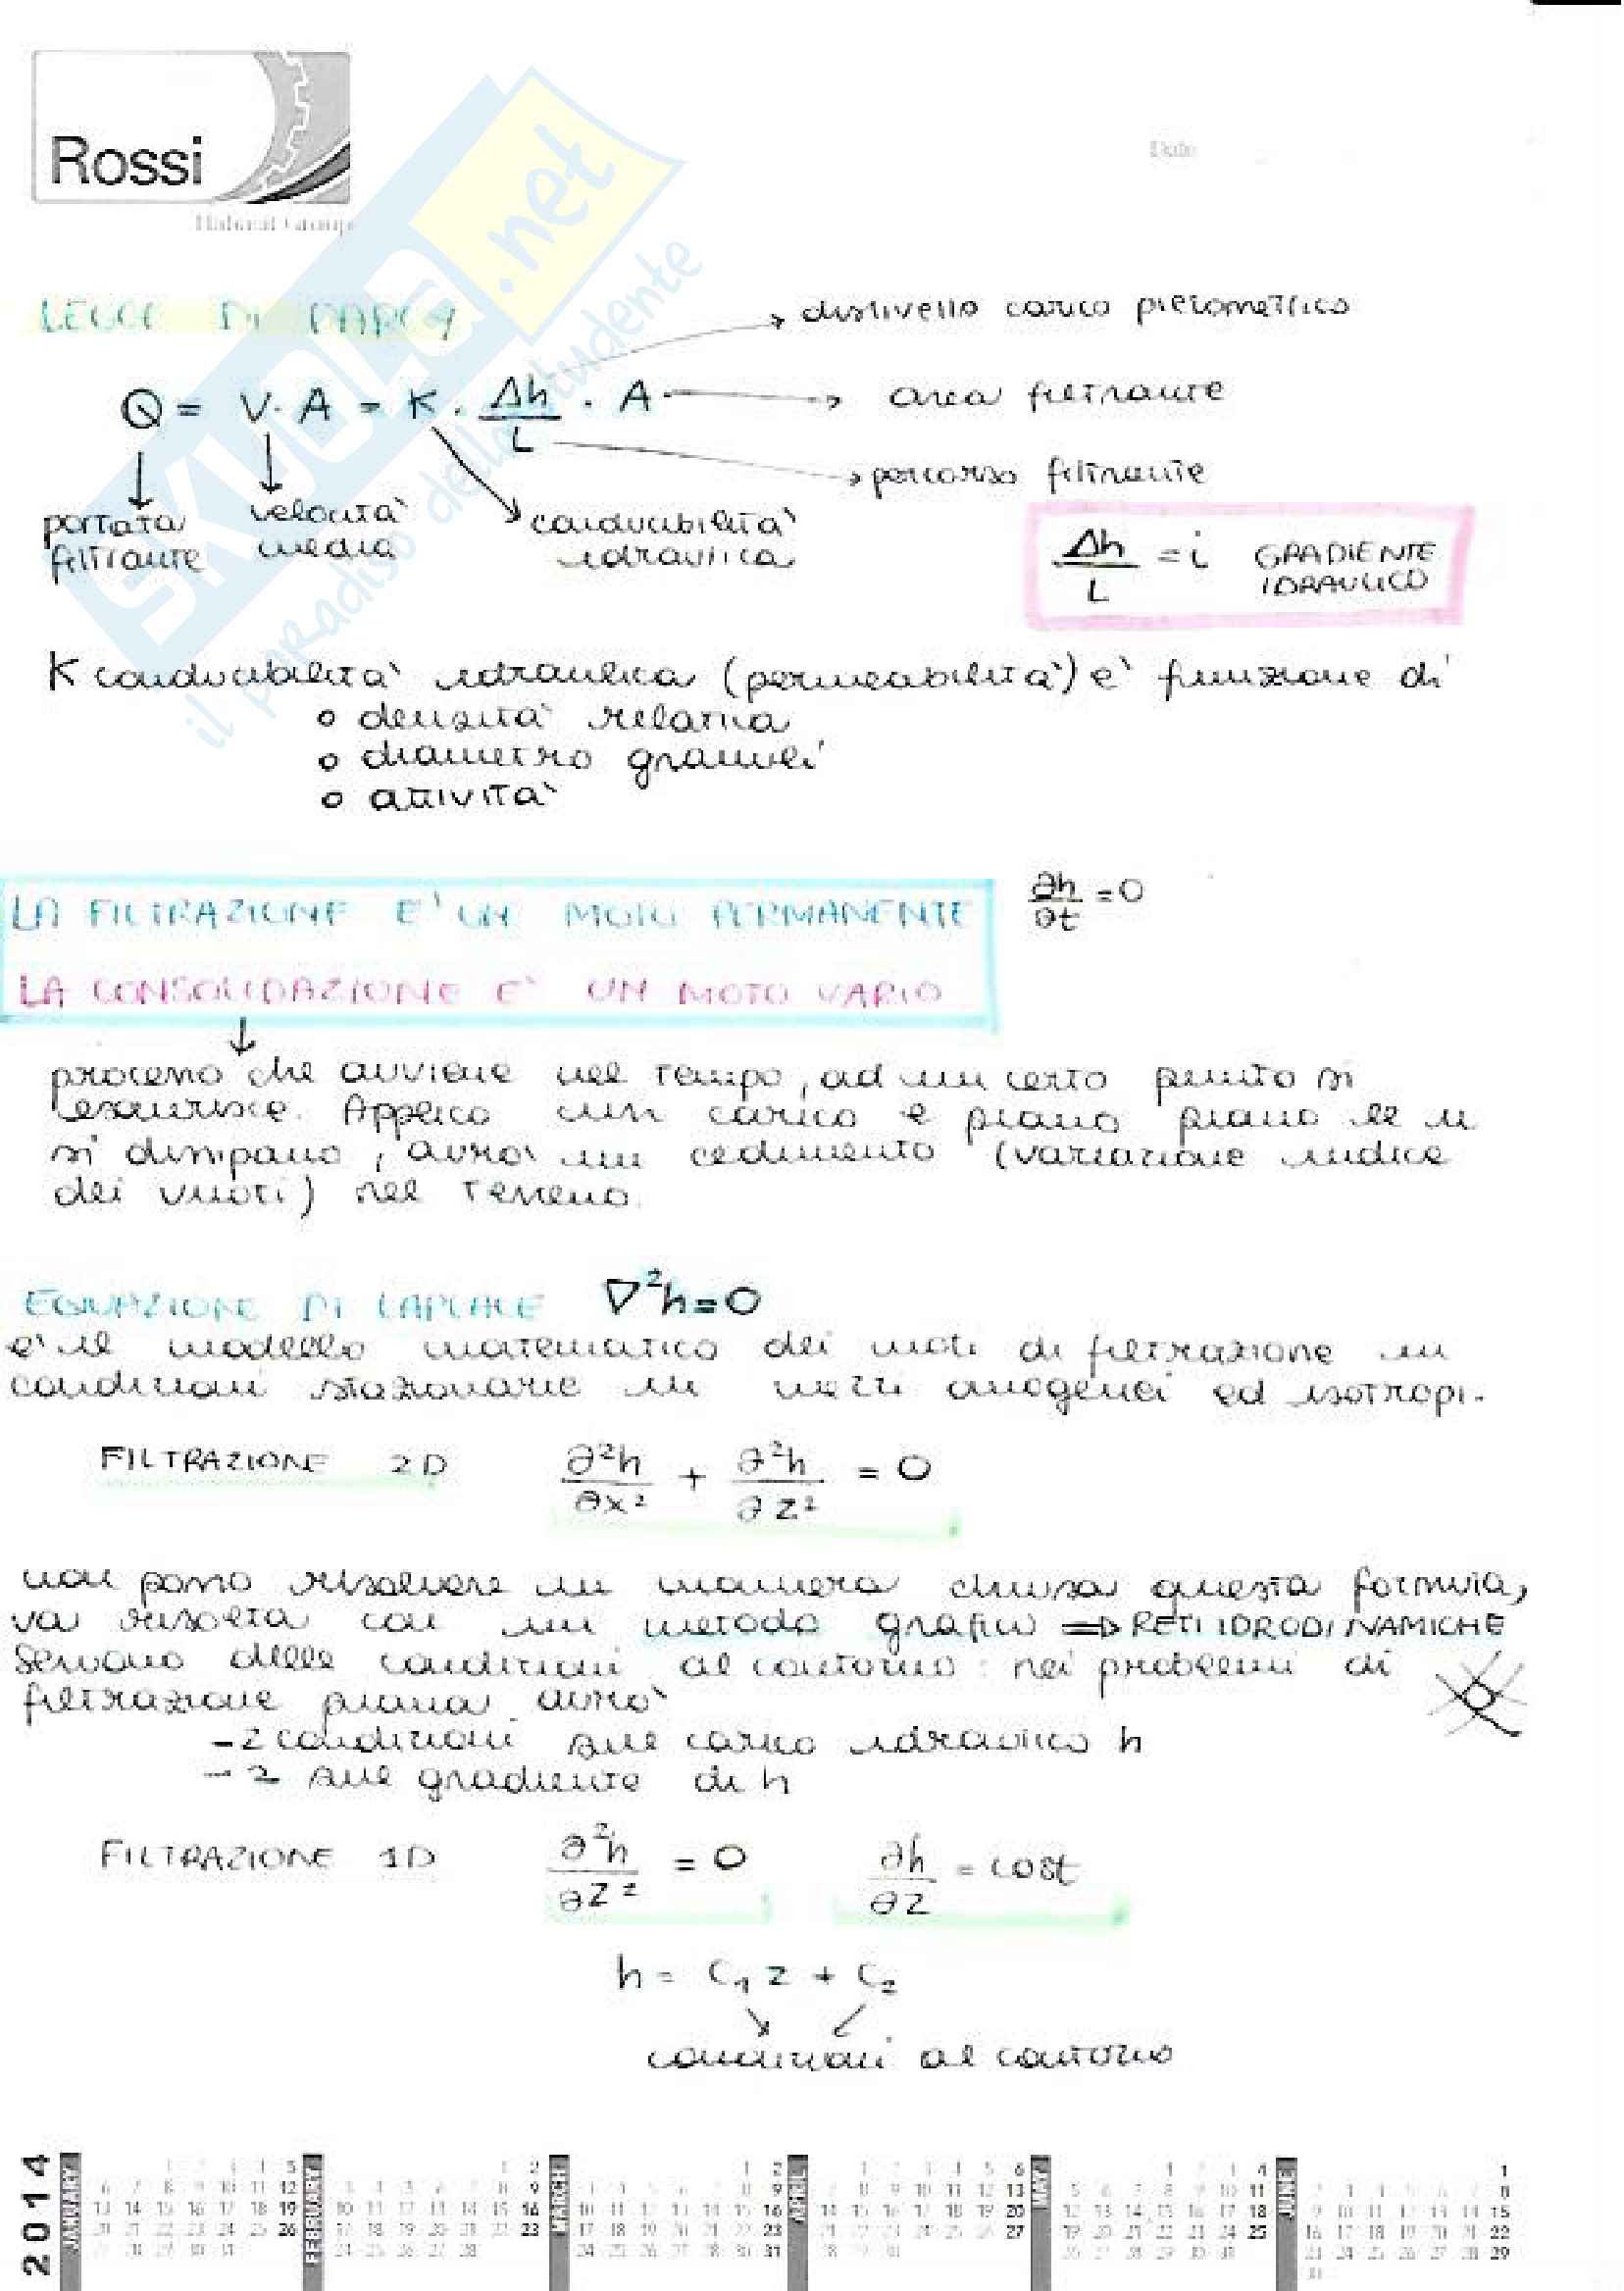 Rossi
Habasit Group
Date
SKUOLA.net
il paradiso dello studente
LEGGE DI DARCY
Q = V · A = K · Δh/L · A
dislivello carico piezometrico
area filtrante
percorso filtrante
portata filtrante
velocità media
conducibilità idraulica
Δh/L = i GRADIENTE IDRAULICO
K conducibilità idraulica (permeabilità) e' funzione di
o densità relativa
o diametro granuli
o attività
LA FILTRAZIONE E' UN MOTO PERMANENTE ∂h/∂t = 0
LA CONSOLIDAZIONE E' UN MOTO VARIO
processo che avviene nel tempo, ad un certo punto si
esaurisce. Applico un carico e piano piano le u
si dissipano, avrò un cedimento (variazione indice
dei vuoti) nel terreno.
EQUAZIONE DI LAPLACE ∇²h=0
e' il modello matematico dei moti di filtrazione in
condizioni stazionarie in mezzi omogenei ed isotropi.
FILTRAZIONE 2D ∂²h/∂x² + ∂²h/∂z² = 0
non posso risolvere in maniera chiusa questa formula,
va risolta con un metodo grafico ⇒ RETI IDRODINAMICHE
Servono delle condizioni al contorno: nei problemi di
filtrazione piana avrò
- 2 condizioni sul carico idraulico h
- 2 sul gradiente di h
FILTRAZIONE 1D ∂²h/∂z² = 0 ∂h/∂z = cost
h = C₁ z + C₂
condizioni al contorno
2014 JANUARY FEBRUARY MARCH APRIL MAY JUNE